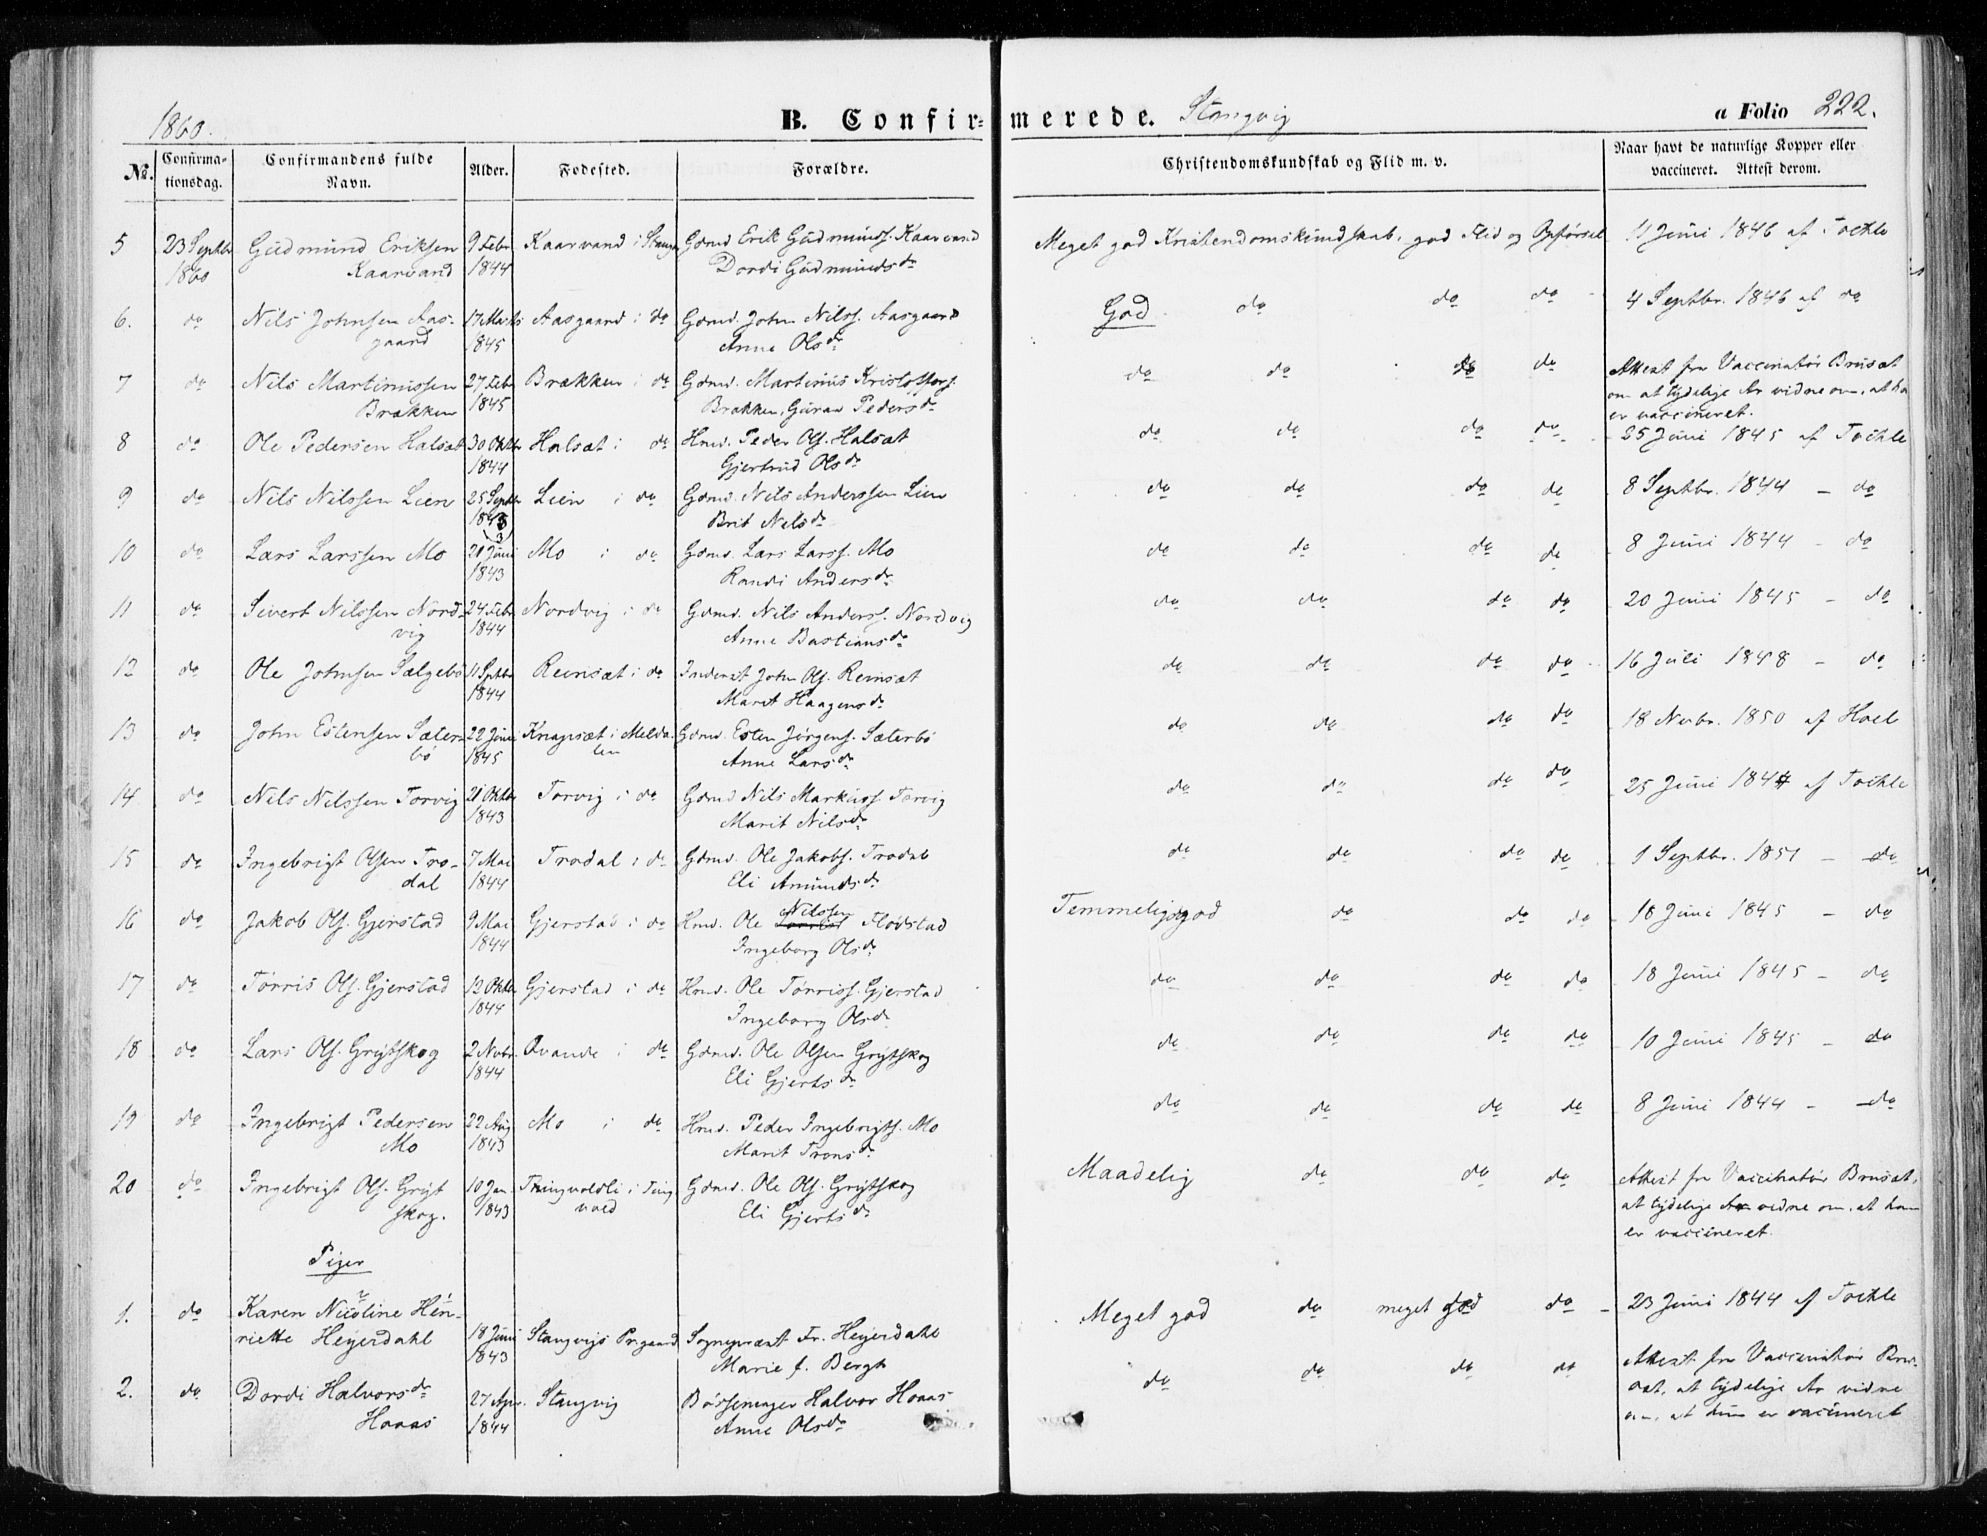 1860.
B. Confirmerede. Stangvig
a Folio 222.
No. Confirmationsdag. Confirmandens fulde Navn. Alder. Fødested. Forældre. Christendomskundskab og Flid m. v. Naar havt de naturlige Kopper eller vaccineret. Attest derom.
5 23 Septbr Gudmund Eriksen 9 Febr Kaarvand i Stangv Gdmd Erik Gudmunds. Kaarvand Meget god Kristendomskundskab, god Flid og Opførsel 11 Juni 1846 af Tochle
1860 Kaarvand 1844 Dordi Gudmundsdr
6. do Nils Johnsen Aas- 17 Marts Aasgaard i do Gdmd. John Nilss. Aasgaard God do do do 4 Septbr. 1846 af do
gaard 1845 Anne Olsdr
7 do Nils Martinussen 27 Febr Brækken i do Gdmd. Martinus Kristoffers. do do do do Attest fra Vaccinatør Brusæt
Brækken 1845 Brækken, Guran Pedersdr om at tydelige Ar vidne om, at han
er vaccineret.
8 do Ole Pedersen Halsæt 30 Oktbr Halsæt i do Hmd. Peder Ols. Halsæt do do do do 25 Juni 1845 af Tochle
1844 Gjertrud Olsdr
9 do Nils Nilssen Lien 25 Septbr Lien i do Gdmd. Nils Anderssen Lien do do do do 8 Septbr. 1844 - do
1843 Brit Nilsdr
10 do Lars Larssen Mo Juni Mo i do Gdmd. Lars Larss. Mo do do do do 8 Juni 1844 - do
1843 Randi Andersdr
11 do Sivert Nilssen Nord- 24 Febr Nordvig i do Gdmd. Nils Anderss. Nordvig do do do do 20 Juni 1845 - do
vig 1844 Anne Bastiansdr
12 do Ole Johnsen Sælgebø 11 Septbr Reinsæt i do Inderst John Ols. Reinsæt do do do do 16 Juli 1848 - do
1844 Marit Haagensdr
13 do John Estensen Sæter- 22 Juni Knapsæt i Melda- Gdmd. Esten Jørgens. Sæterbø do do do do 18 Novbr. 1850 af Hoel
bø 1845 len Anne Larsdr
14 do Nils Nilssen Torvig 21 Oktbr Torvig i do Gdmd Nils Markuss. Torvig do do do do 25 Juni 1844 af Tochle
1843 Marit Nilsdr
15 do Ingebrigt Olsen Tro- 7 Mai Trodal i do Gdmd. Ole Jakobs. Trodal do do do do 1 Septbr. 1851 - do
dal 1844 Eli Amundsdr
16 do Jakob Ols. Gjerstad 9 Mai Gjerstad i do Hmd. Ole Nilssen Flødstad Temmelig god do do do 18 Juni 1845 - do
1844 Ingeborg Olsdr
17 do Tørris Ols. Gjerstad 12 Oktbr Gjerstad i do Hmd. Ole Tørriss. Gjerstad do do do do 18 Juni 1845 - do
1844 Ingeborg Olsdr
18 do Lars Ols. Grytskog 2 Novbr. Qvande i do Gdmd. Ole Olsen Grytskog do do do do 10 Juni 1845 - do
1844 Eli Gjertsdr
19 do Ingebrigt Pedersen 22 Aug Mo i do Hmd. Peder Ingebrigts. Mo do do do do 8 Juni 1844 - do
Mo 1843 Marit Tronsdr
20 do Ingebrigt Ols. Gryt 10 Jan. Tingvoldli i Ting Gdmd. Ole Ols. Grytskog Maadelig do do do Attest fra Vaccinatør Brusæt,
skog. 1843 vold Eli Gjertsdr at tydelige Ar vidne om, at han
er vaccineret.
Piger
1. do Karen Nicoline Hen- 18 Juni Stangvigs Prgaard Sognepræst Fr. Heyerdahl Meget god do meget god do - 23 Juni 1844 af Tochle
riette Heyerdahl 1843 Marie f. Bergh
2. do Dordi Halvorsdr 27 Apr. Stangvig Bøssemager Halvor Hoaas do do do do Attest fra Vaccinatør Bru-
Hoaas 1844 Anne Olsdr sæt, at tydelige Ar vidne
om, at hun er vaccineret